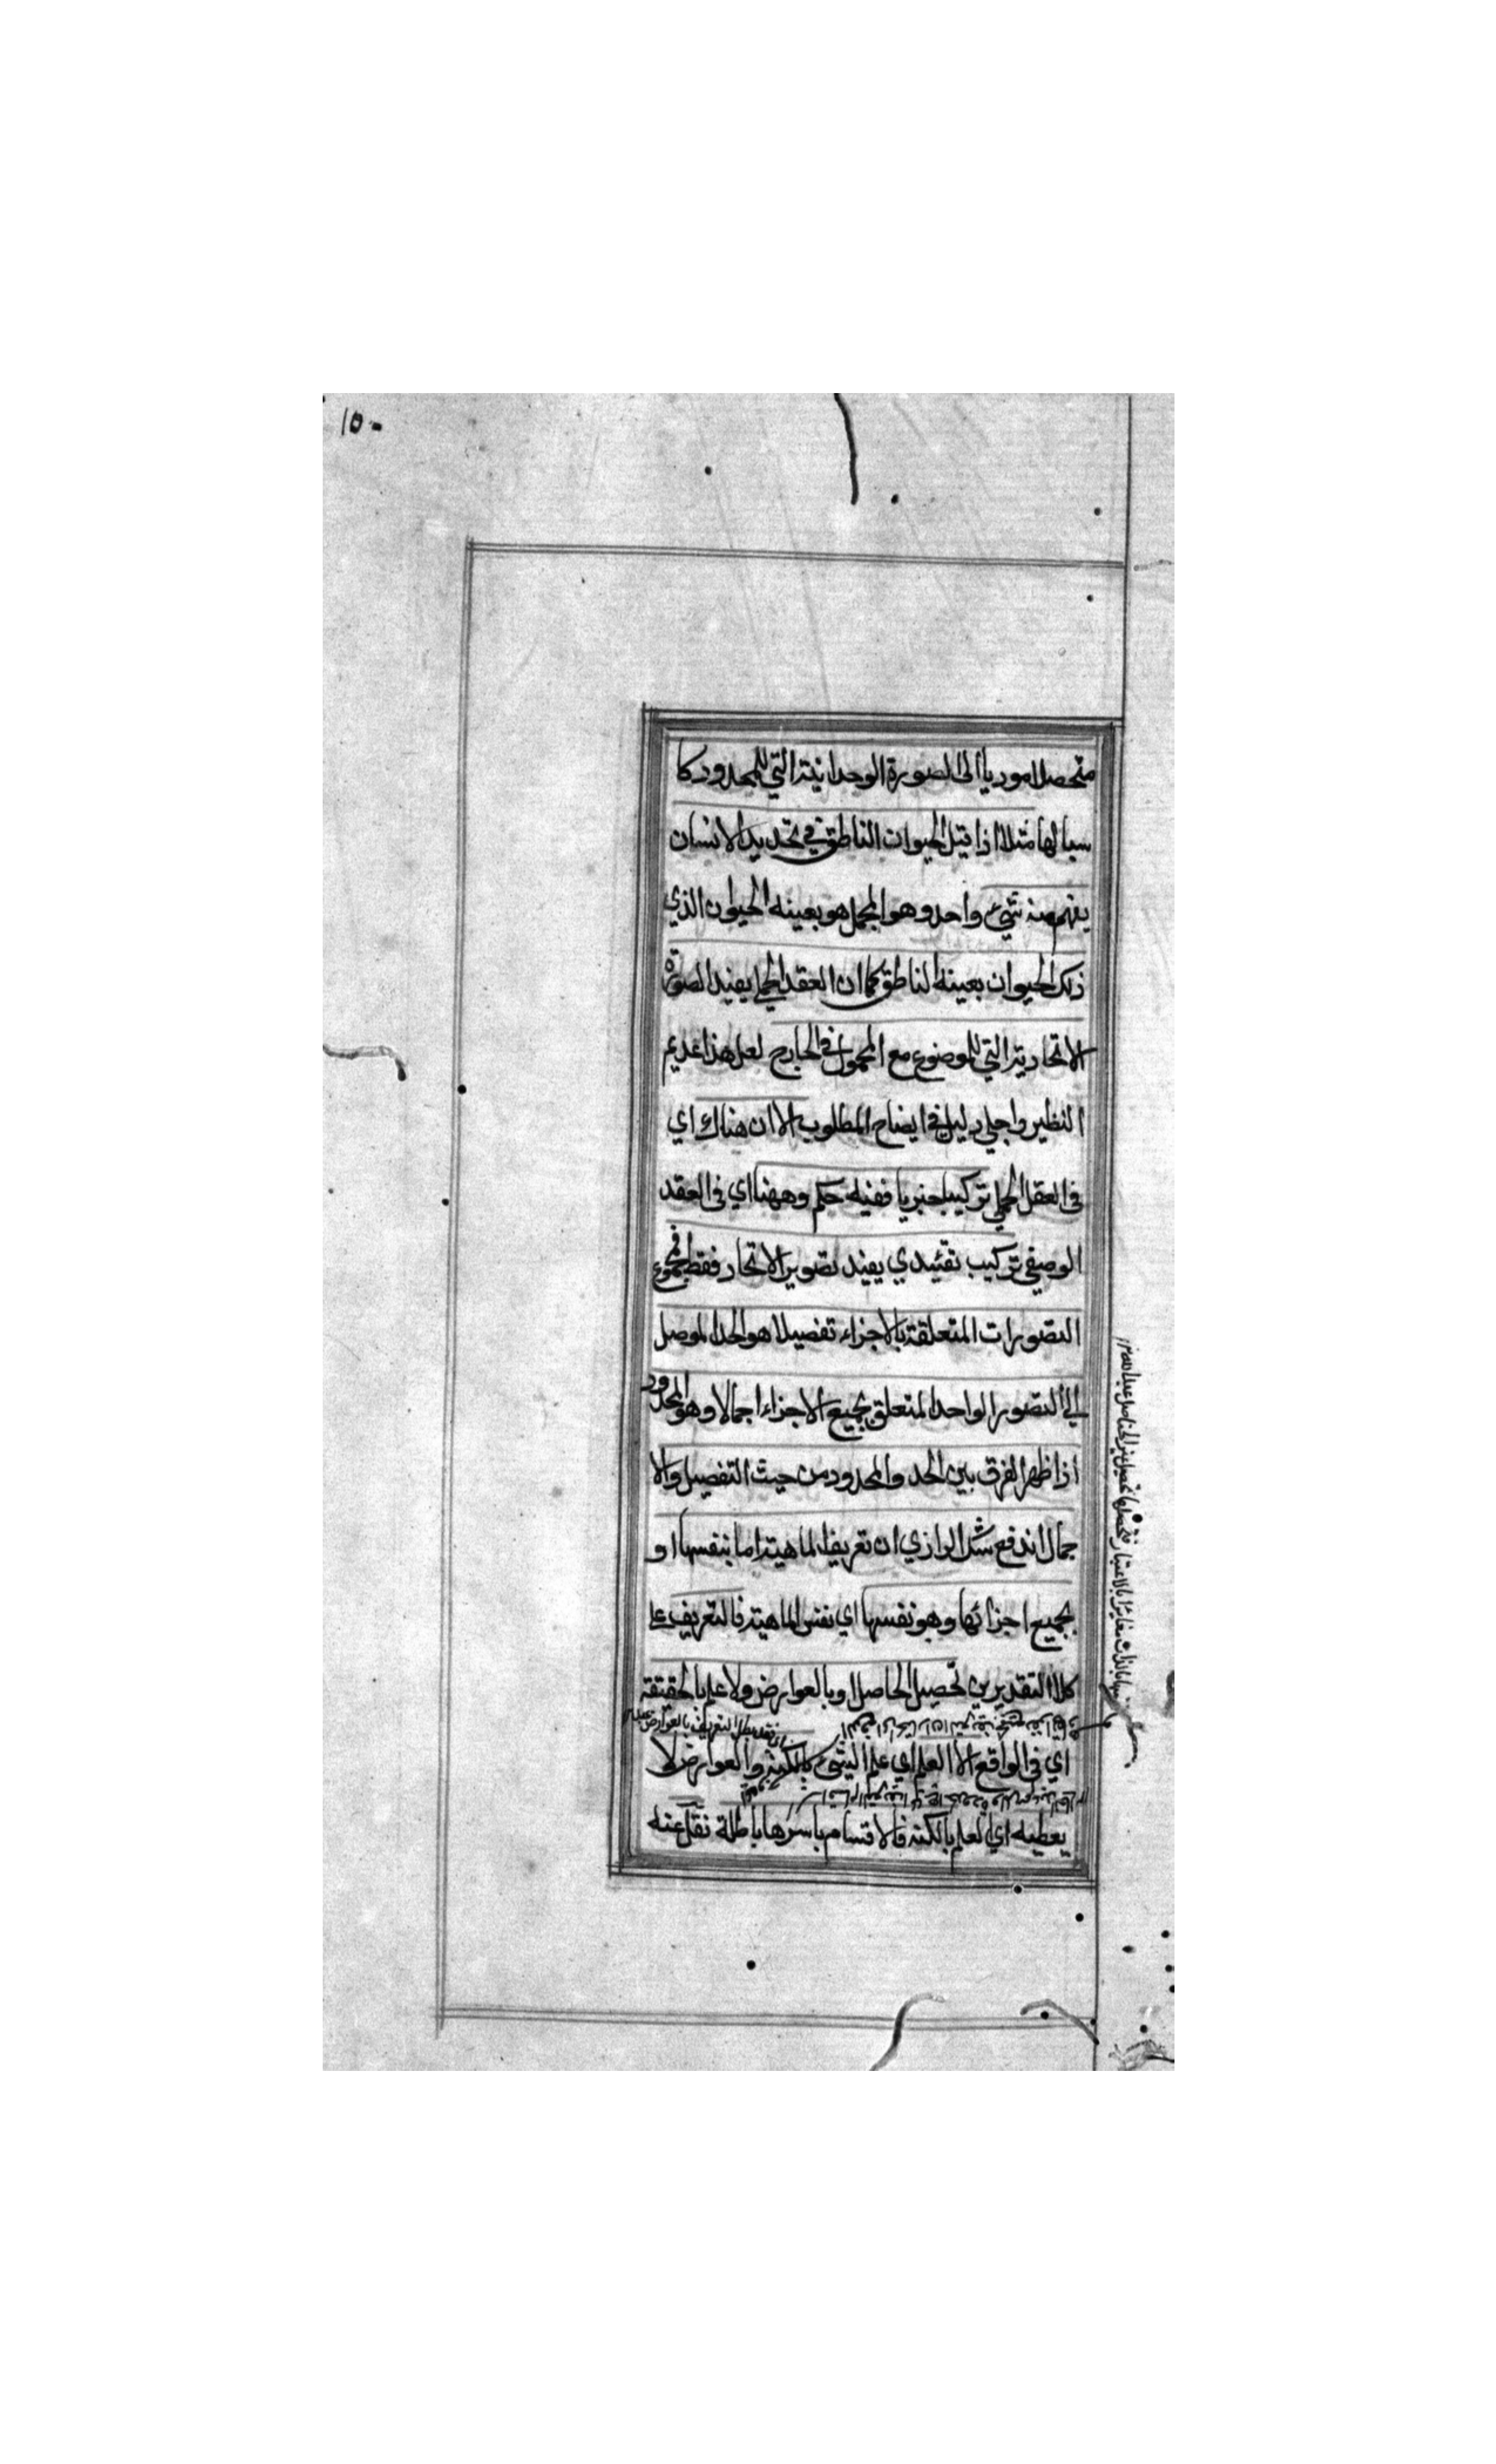 ١٥٠
متحصلا موديا الى الصورة الوحدانية التي للمحدود كا
سبا لها مثلا اذا قيل الحيوان الناطق في تحديد الانسان
يفهم منه شيئ واحد وهو المجمل هو بعينه الحيوان الذي
ذلك الحيوان بعينه الناطق كما ان العقد الحملي يفيد الصورة
الاتحادية التي للموضوع مع المحمول في الخارج لعل هذا عديم
النظير واجلي دليل في ايضاح المطلوب الا ان هناك اي
في العقل الحملي تركيبا خبريا ففيه حكم وههنا اي في العقد
الوصفي تركيب تقئيدي يفيد تصوير الاتحاد فقط فمجموع
التصورات المتعلقة بالاجزاء تفصيلا هو الحد الموصل
الي التصور الواحد المتعلق بجميع الاجزاء اجمالا وهو المحدود
اذا ظهر الفرق بين الحد والمحدود من حيث التفصيل والا
جمال اندفع شك الرازي ان تعريف الماهية اما بنفسها او
بجميع اجزائها وهو نفسها اي نفس الماهية فالتعريف على
كلا التقديرين تحصيل الحاصل او بالعوارض ولا علم بالحقيقة
اي في الواقع الا العلم اي علم الشيئ بالكنه والعوارض لا
يعطيه اي العلم بالكنه فالاقسام باسرها باطلة نقل عنه